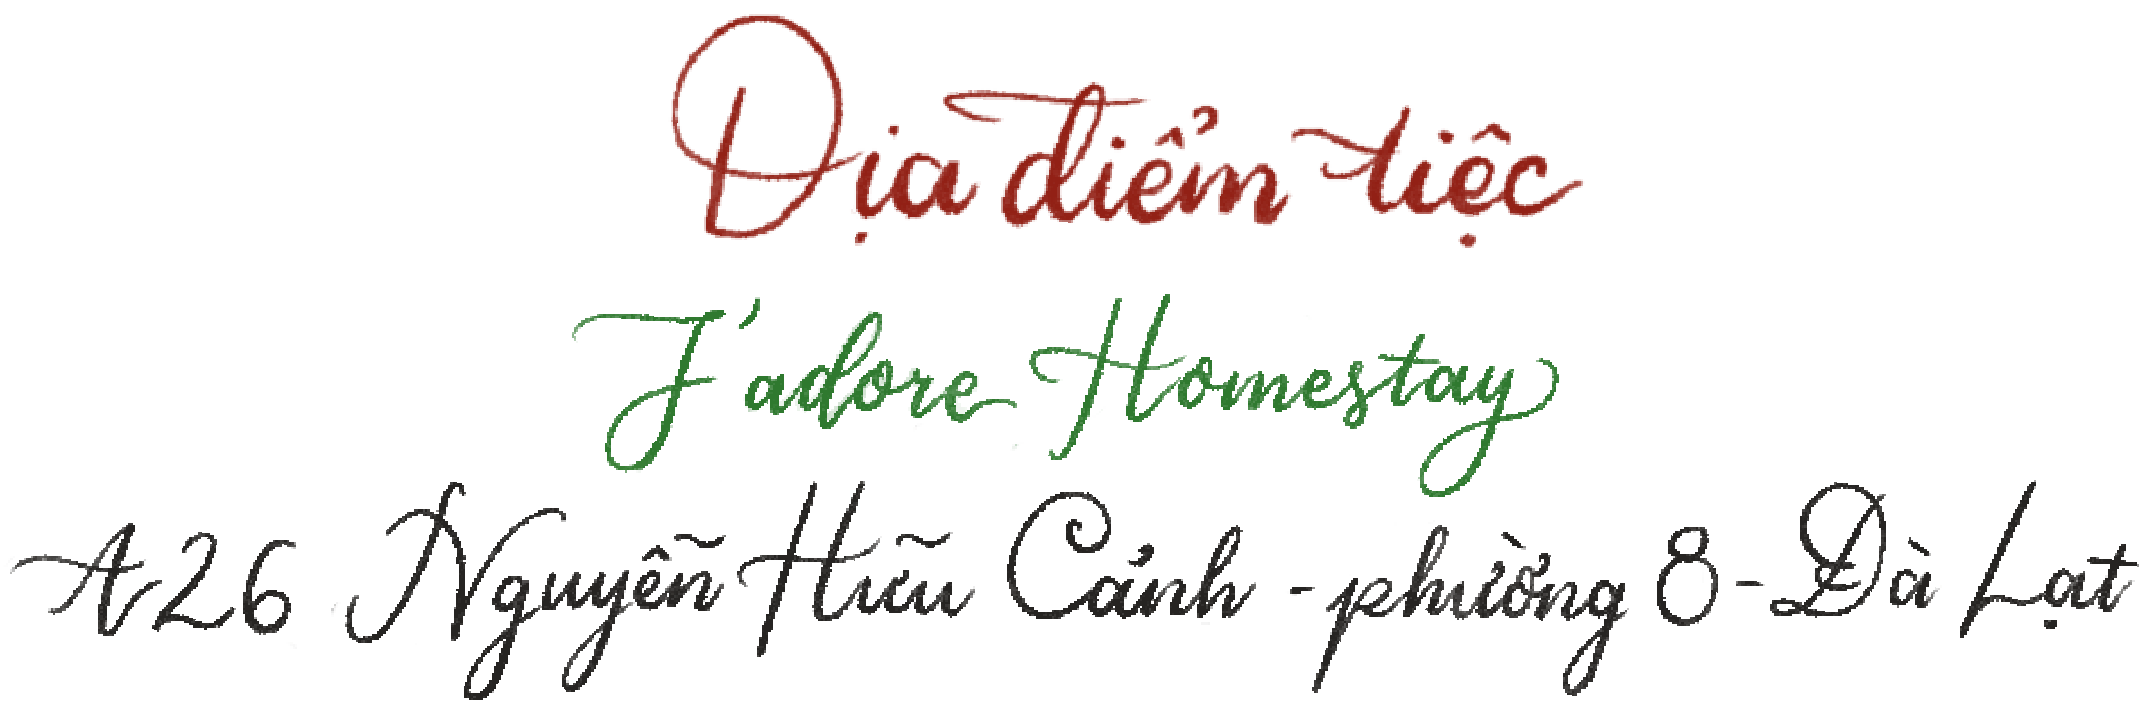 Địa điểm tiệc
J'adore Homestay
A26 Nguyễn Hữu Cảnh - phường 8 - Đà Lạt